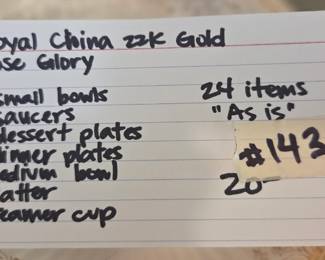 oyal China 22K Gold
ose Glory
small bowls
saucers
dessert plates
dinner plates
edium bowl
latter
reamer cup
24 items
"As is"
#143
20